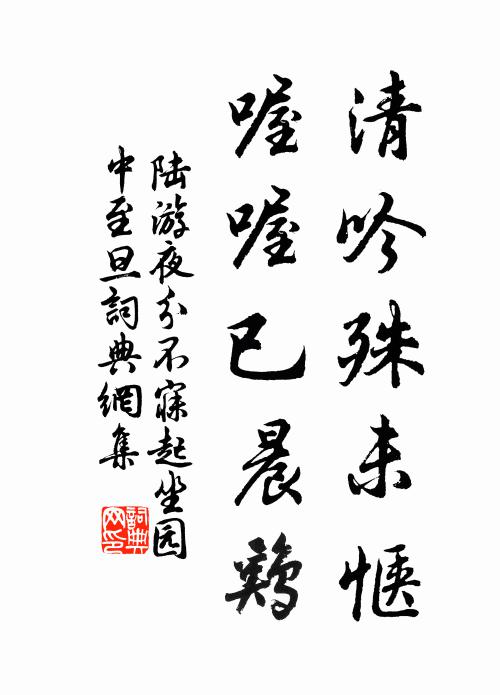 清吟殊未惬
喔喔已晨鷄
陆游夜分不寐起坐园
中至旦詞典網集
詞典
网印